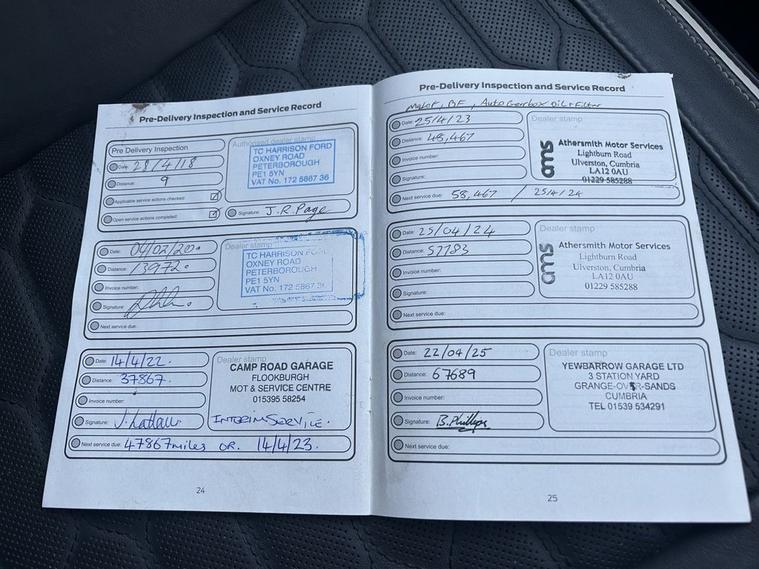 Pre-Delivery Inspection and Service Record
Pre Delivery Inspection
Date: 28/4/18
Distance: 9
Applicable service actions checked:
Open service actions completed:
Authorised dealer stamp
TC HARRISON FORD
OXNEY ROAD
PETERBOROUGH
PE1 5YN
VAT No. 172 5867 36
Signature: J.R. Page
Date: 04/02/20.
Distance: 13972.
Invoice number:
Signature:
Next service due:
Dealer stamp
TC HARRISON FORD
OXNEY ROAD
PETERBOROUGH
PE1 5YN
VAT No. 172 5867 36
Date: 14/4/22.
Distance: 37867.
Invoice number:
Signature:
Next service due: 47867miles OR. 14/4/23.
Dealer stamp
CAMP ROAD GARAGE
FLOOKBURGH
MOT & SERVICE CENTRE
015395 58254
INTERIM SERVICE.
24
Pre-Delivery Inspection and Service Record
Major, BF, Auto Gearbox Oil + Filter
Date: 25/4/23
Distance: 48,467
Invoice number:
Signature:
Next service due: 58,467 / 25/4/24
Dealer stamp
ams
Athersmith Motor Services
Lightburn Road
Ulverston, Cumbria
LA12 0AU
01229 585288
Date: 25/04/24
Distance: 57783
Invoice number:
Signature:
Next service due:
Dealer stamp
ams
Athersmith Motor Services
Lightburn Road
Ulverston, Cumbria
LA12 0AU
01229 585288
Date: 22/04/25
Distance: 67689
Invoice number:
Signature: B.Phillips
Next service due:
Dealer stamp
YEWBARROW GARAGE LTD
3 STATION YARD
GRANGE-OVER-SANDS
CUMBRIA
TEL 01539 534291
25